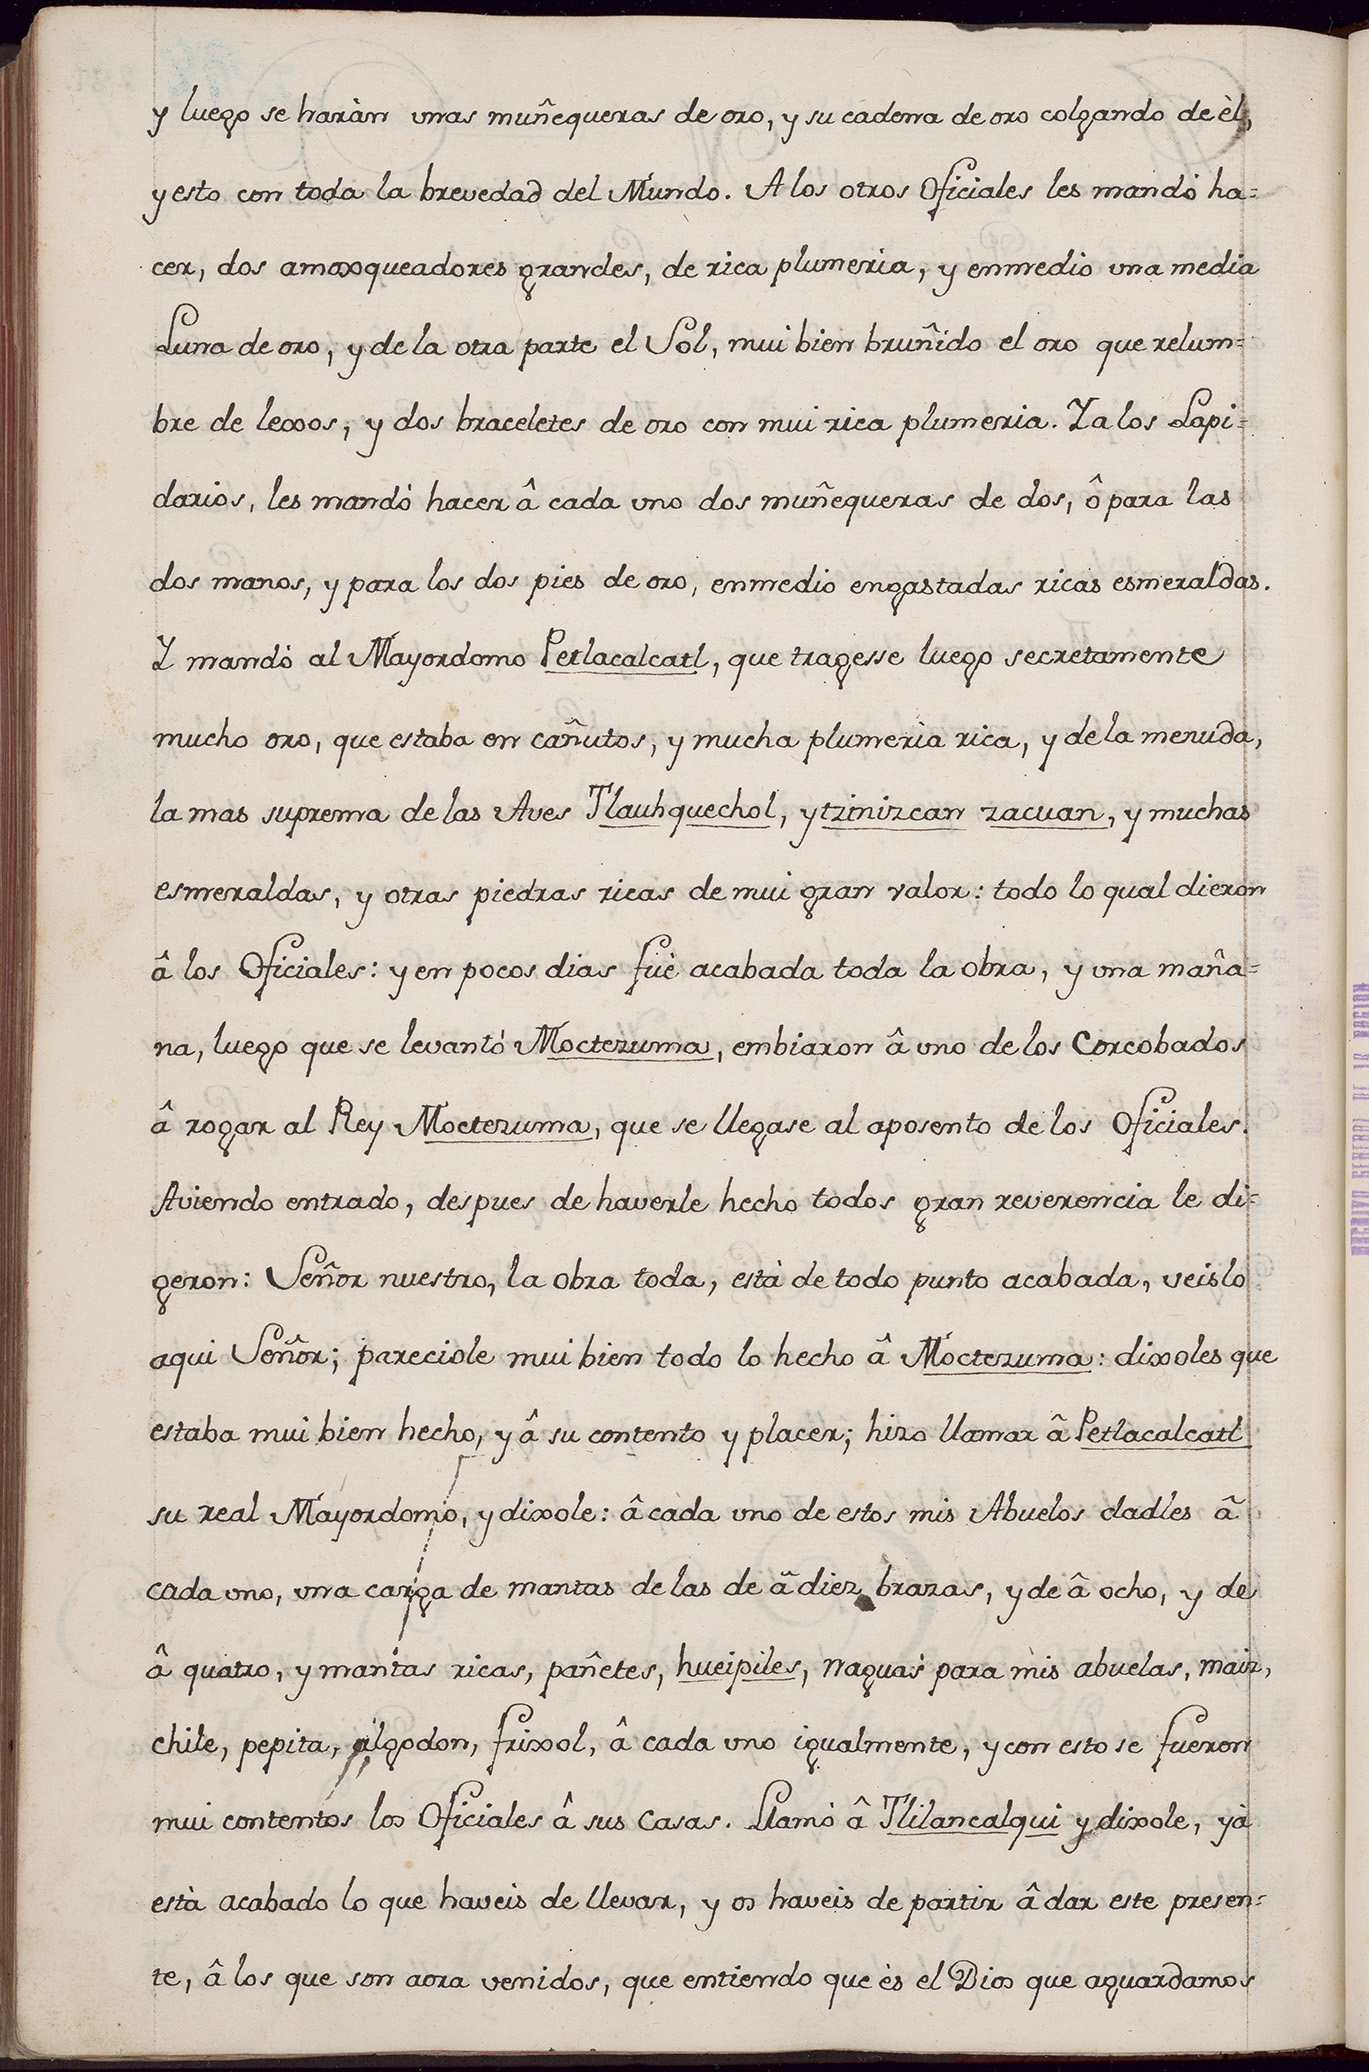 y luego se haràn unas muñequeras de oro, y su cadena de oro colgando de èl,
y esto con toda la brevedad del Mundo. A los otros Oficiales les mandò ha=
cer, dos amoxqueadores grandes, de rica plumeria, y enmedio una media
Luna de oro, y de la otra parte el Sol, mui bien bruñido el oro que relum=
bre de lexos, y dos braceletes de oro con mui rica plumeria. Y a los Lapi=
darios, les mandò hacer â cada uno dos muñequeras de dos, ô para las
dos manos, y para los dos pies de oro, enmedio engastadas ricas esmeraldas.
Y mandò al Mayordomo Petlacalcatl, que tragesse luego secretamente
mucho oro, que estaba en cañutos, y mucha plumeria rica, y de la menuda,
la mas suprema de las Aves Tlauhquechol, y tzinizcan zacuan, y muchas
esmeraldas, y otras piedras ricas de mui gran valor: todo lo qual dieron
â los Oficiales: y en pocos dias fuè acabada toda la obra, y una maña=
na, luego que se levantò Moctezuma, embiaron â uno de los Corcobados
â rogar al Rey Moctezuma, que se llegase al aposento de los Oficiales.
Aviendo entrado, despues de haverle hecho todos gran reverencia le di=
geron: Señor nuestro, la obra toda, està de todo punto acabada, veislo
aqui Señor; pareciole mui bien todo lo hecho â Moctezuma: dixoles que
estaba mui bien hecho, y â su contento y placer; hizo llamar â Petlacalcatl
su real Mayordomo, y dixole: â cada uno de estos mis Abuelos dadles â
cada uno, una carga de mantas de las de â diez brazas, y de â ocho, y de
â quatro, y mantas ricas, pañetes, hueipiles, naguas para mis abuelas, maiz,
chile, pepita, algodon, frixol, â cada uno igualmente, y con esto se fueron
mui contentos los Oficiales â sus casas. Llamò â Tlilancalqui y dixole, yà
està acabado lo que haveis de llevar, y os haveis de partir â dar este presen=
te, â los que son aora venidos, que entiendo que ès el Dios que aguardamos
ARCHIVO GENERAL DE LA NACION